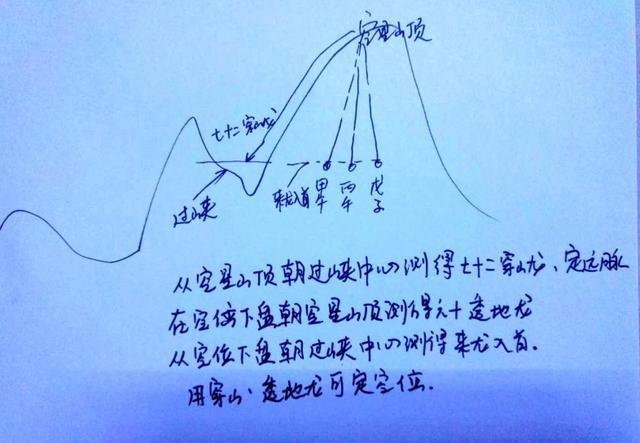 穴星山顶
七十二穿山龙
过峡
来龙入首
甲午
丙午
戊子
从穴星山顶朝过峡中心测得七十二穿山龙、定远脉
在穴位下盘朝穴星山顶测得六十透地龙
从穴位下盘朝过峡中心测得来龙入首.
用穿山、透地龙可定穴位.